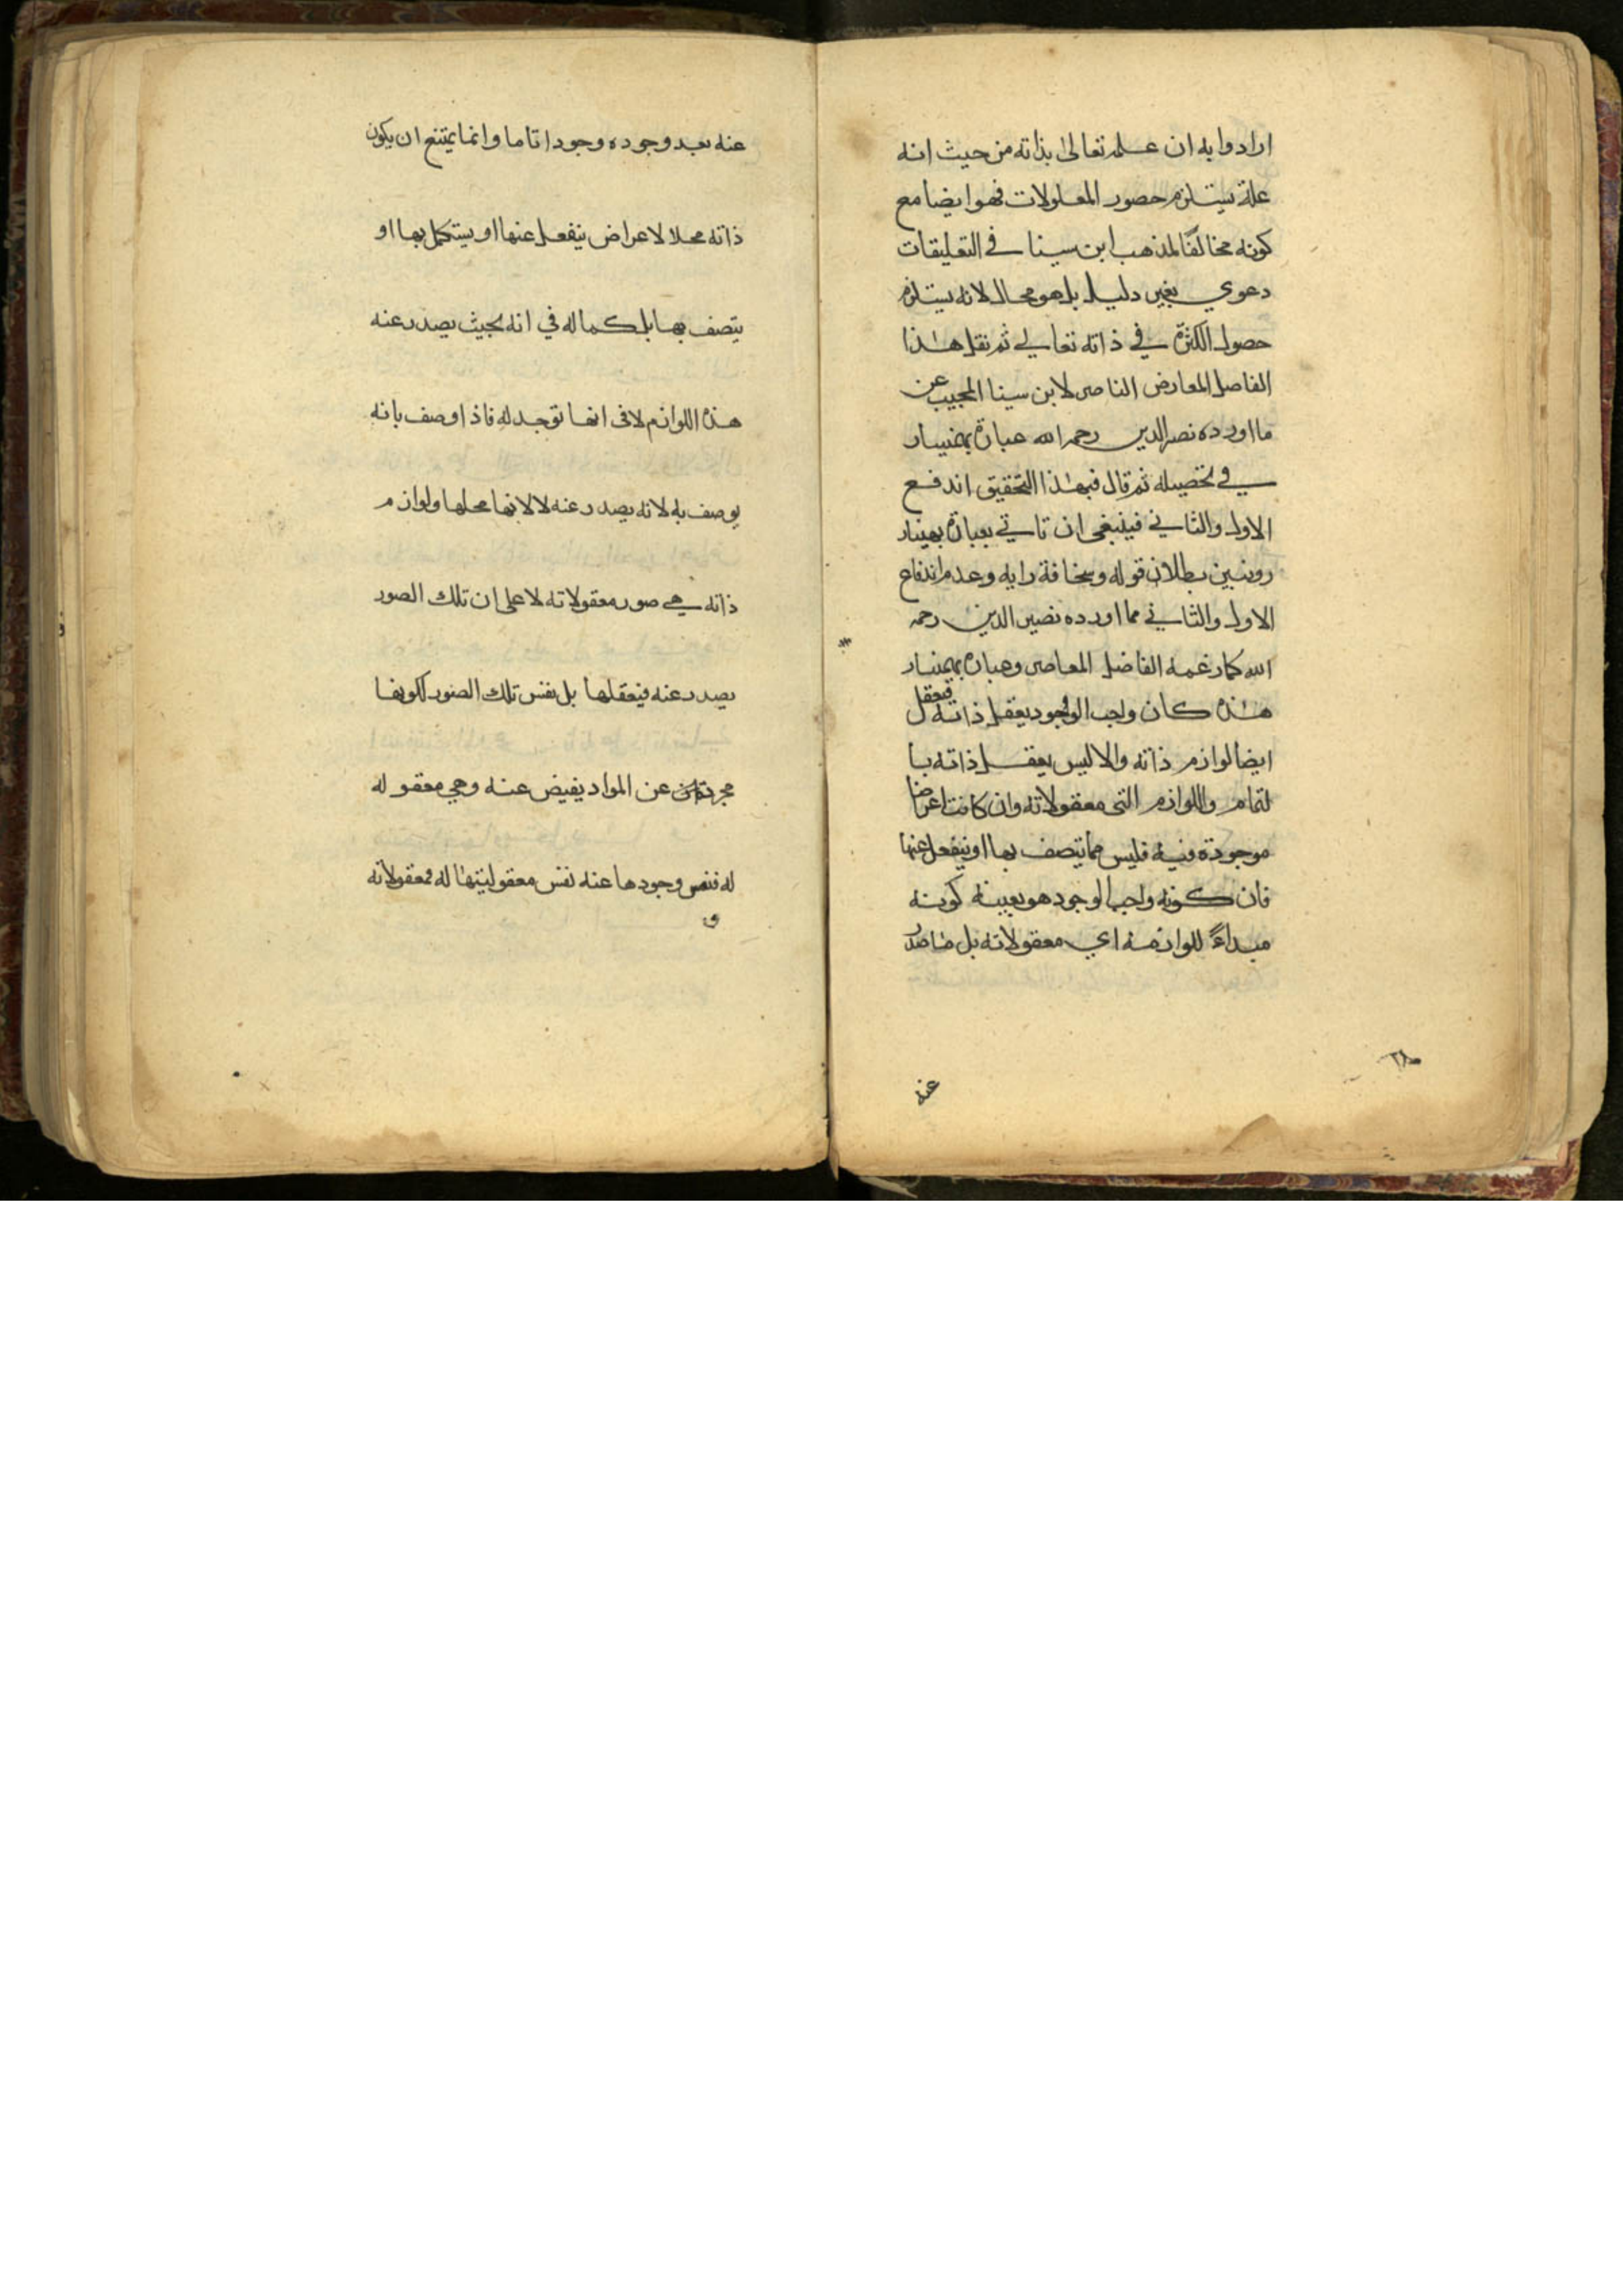 ارادوا به ان علمه تعالى بذاته من حيث انه
علة يستلزم حصور المعلولات فهو ايضا مع
كونه مخالفا لمذهب ابن سينا في التعليقات
دعوي بغير دليل بل هو محال لانه يستلزم
حصول الكثرة في ذاته تعالي ثم نقل هذا
الفاضل المعارض الناصر لابن سينا المجيب عن
ما اورده نصر الدين رحمه الله عبارة بهمنيار
في تحصيله ثم قال فبهذا التحقيق اندفع
الاول والثاني فينبغي ان تاتي بعبارة بهمنيار
ونبين بطلان قوله وسخافة رايه وعدم اندفاع
الاول والثاني مما اورده نصير الدين رحمه
الله كما زعمه الفاضل المعاصر وعبارة بهمنيار
هذه كان واجب الوجود يعقل ذاته فيعقل
ايضا لوازم ذاته والا ليس يعقل ذاته با
لتمام واللوازم التي معقولاته وان كانت اعراضا
موجودة فيه فليس مما يتصف بها او ينفعل عنها
فان كونه واجب الوجود هو بعينه كونه
مبداءً للوازمه اي معقولاته بل ما صدر
عنه
٢٨
عنه بعد وجوده وجودا تاما وانما يمتنع ان يكون
ذاته محلا لاعراض ينفعل عنها او يستكمل بها او
يتصف بها بل كماله في انه بحيث يصدر عنه
هذه اللوازم لا في انها توجد له فاذا وصف بانه
يوصف به لانه يصدر عنه لا لانها محلها ولوازم
ذاته هي صور معقولاته لا على ان تلك الصور
يصدر عنه فيعقلها بل نفس تلك الصور لكونها
مجردة عن المواد يفيض عنه وهي معقوله
له فنفس وجودها عنه نفس معقوليتها له فمعقولاته